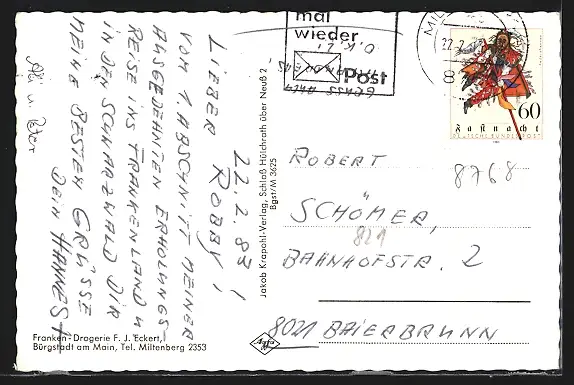 22.2.83 !
LIEBER ROBBY !
VOM 1. ABSCHNITT MEINER
AUSGEDEHNTEN ERHOLUNGS-
REISE INS FRANKENLAND U
IN DEN SCHWARZWALD DIR
MEINE BESTEN GRÜSSE
DEIN HANNES!
Franken-Drogerie F. J. Eckert,
Bürgstadt am Main, Tel. Miltenberg 2353
Jakob Krapohl-Verlag, Schloß Hülchrath über Neuß 2
Bgst/M 3625
Agfa
mal
wieder
Post
MIL
22.2.
8
60
Fastnacht
DEUTSCHE BUNDESPOST
8768
ROBERT
SCHÖMER,
821
BAHNHOFSTR. 2
8021 BAIERBRUNN